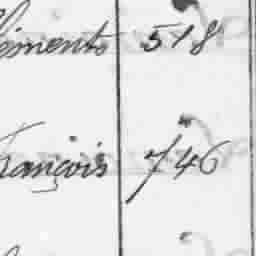 éments 518
rançois 746